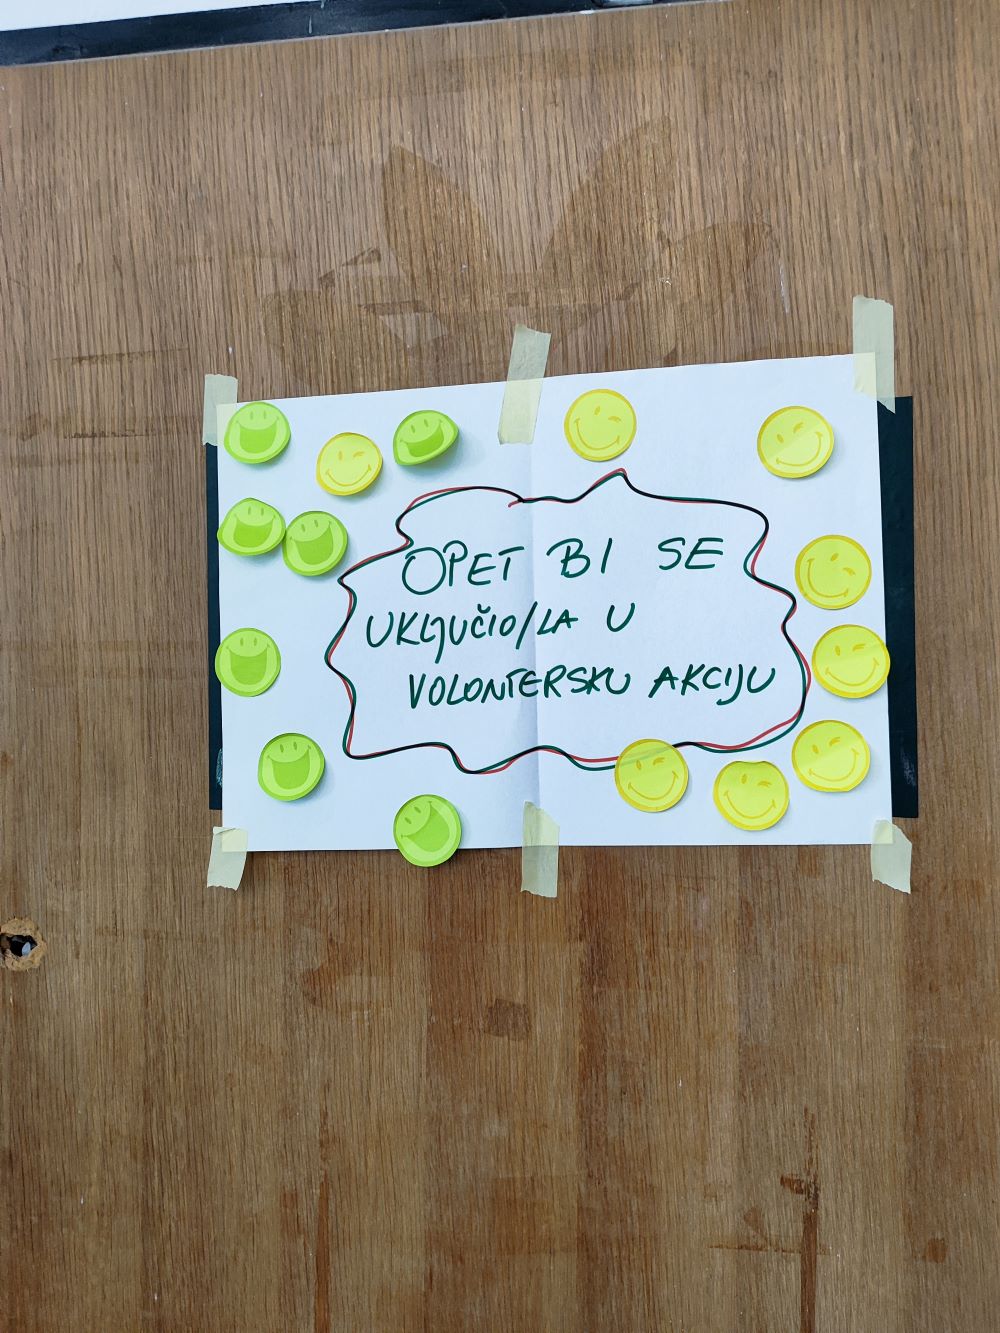 OPET BI SE
UKLJUČIO/LA U
VOLONTERSKU AKCIJU